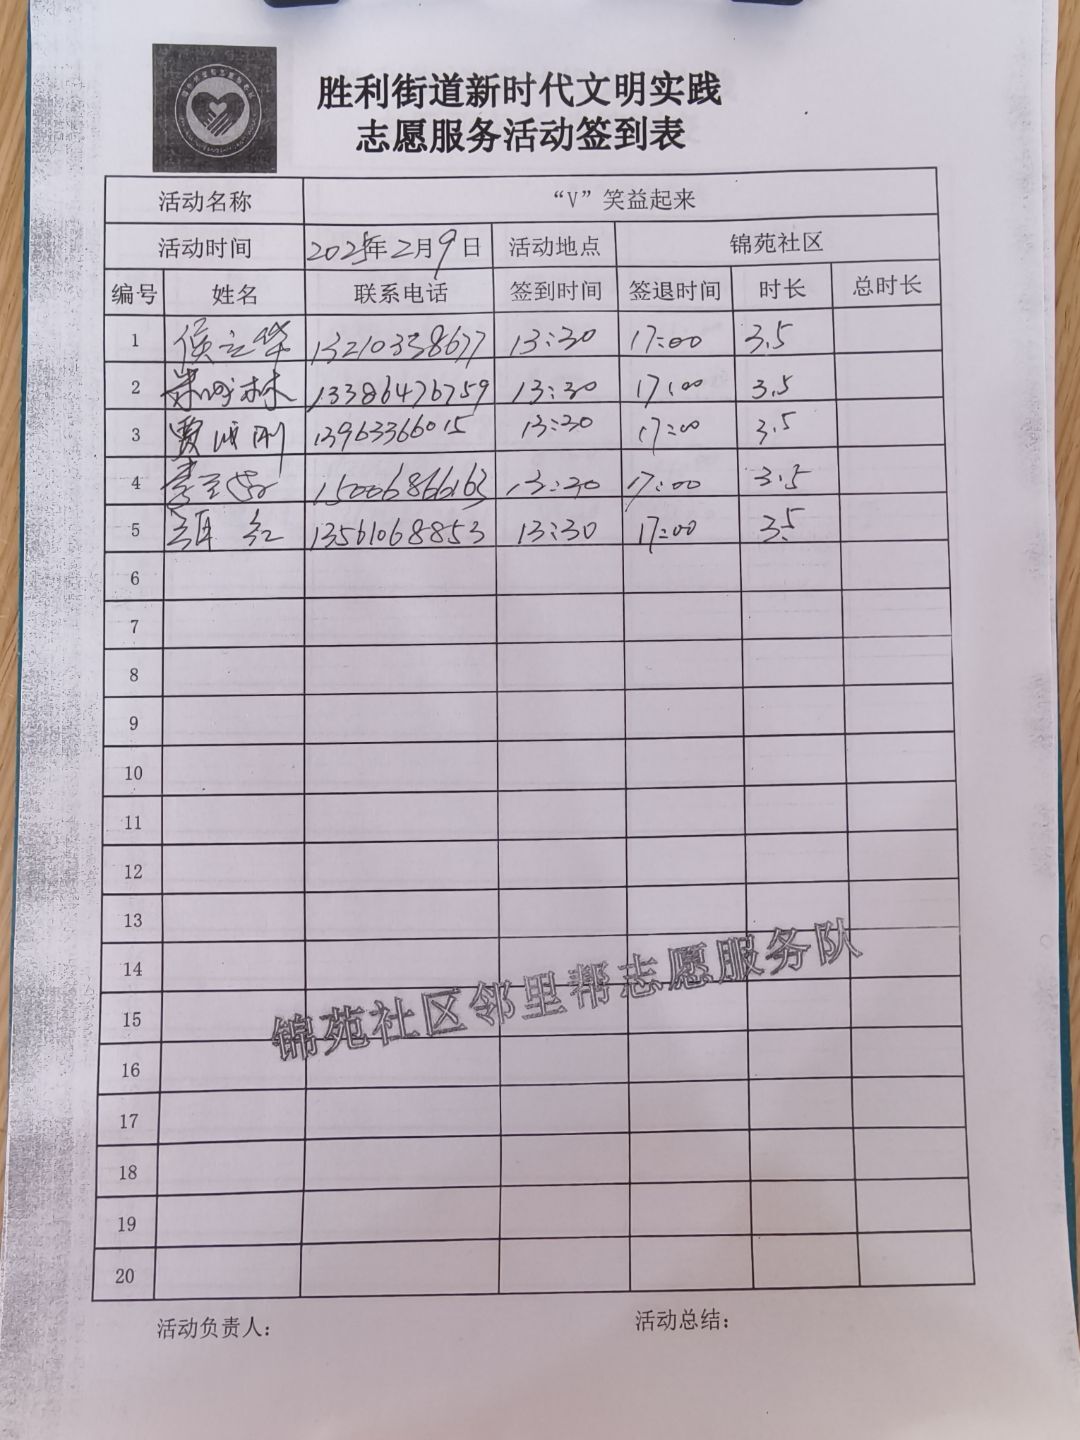 胜利街道新时代文明实践
志愿服务活动签到表
活动名称 “V”笑益起来
活动时间 2025年2月9日 活动地点 锦苑社区
编号 姓名 联系电话 签到时间 签退时间 时长 总时长
1 侯立华 13210338677 13:30 17:00 3.5
2 13386476759 13:30 17:00 3.5
3 贾成刚 13963366015 13:30 17:00 3.5
4 15006866163 13:30 17:00 3.5
5 红 13561068853 13:30 17:00 3.5
6
7
8
9
10
11
12
13
14
锦苑社区邻里帮志愿服务队
15
16
17
18
19
20
活动负责人: 活动总结: